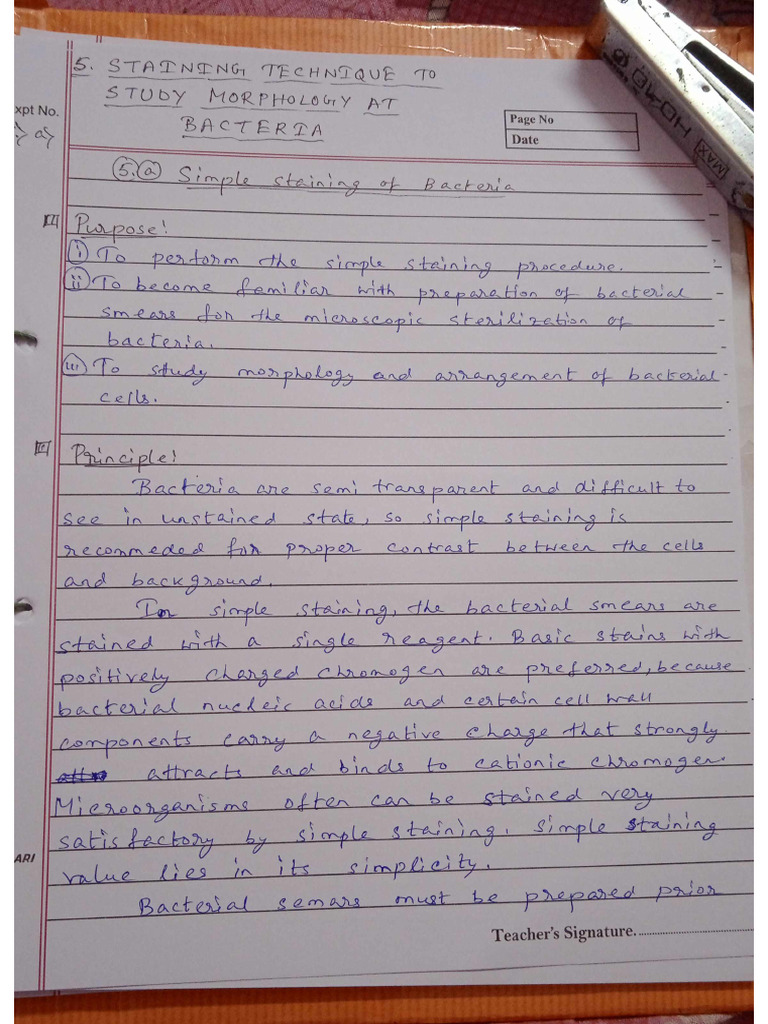 5. STAINING TECHNIQUE TO
STUDY MORPHOLOGY AT
BACTERIA
xpt No.
a)
Page No
Date
5.a Simple staining of Bacteria
Purpose!
i) To perform the simple staining procedure.
ii) To become familiar with preparation of bacterial
smears for the microscopic sterilization of
bacteria.
iii) To study morphology and arrangement of bacterial
cells.
Principle!
Bacteria are semi transparent and difficult to
see in unstained state, so simple staining is
recommeded for proper contrast between the cells
and background.
In simple staining, the bacterial smears are
stained with a single reagent. Basic stains with
positively charged chromogen are preferred, because
bacterial nucleic acids and certain cell wall
components carry a negative charge that strongly
attracts and binds to cationic chromogen.
Microorganisms often can be stained very
satisfactory by simple staining. Simple staining
value lies in its simplicity.
Bacterial semars must be prepared prior
ARI
Teacher's Signature.
MAX